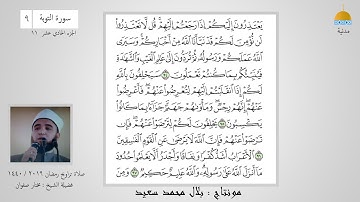 ٩ سورة التوبة
الجزء الحادي عشر ١١
مدنية
يَعْتَذِرُونَ إِلَيْكُمْ إِذَا رَجَعْتُمْ إِلَيْهِمْ قُل لَّا تَعْتَذِرُوا
لَن نُّؤْمِنَ لَكُمْ قَدْ نَبَّأَنَا اللَّهُ مِنْ أَخْبَارِكُمْ وَسَيَرَى
اللَّهُ عَمَلَكُمْ وَرَسُولُهُ ثُمَّ تُرَدُّونَ إِلَىٰ عَالِمِ الْغَيْبِ وَالشَّهَادَةِ
فَيُنَبِّئُكُم بِمَا كُنتُمْ تَعْمَلُونَ ٩٤ سَيَحْلِفُونَ بِاللَّهِ
لَكُمْ إِذَا انقَلَبْتُمْ إِلَيْهِمْ لِتُعْرِضُوا عَنْهُمْ فَأَعْرِضُوا
عَنْهُمْ إِنَّهُمْ رِجْسٌ وَمَأْوَاهُمْ جَهَنَّمُ جَزَاءً بِمَا كَانُوا
يَكْسِبُونَ ٩٥ يَحْلِفُونَ لَكُمْ لِتَرْضَوْا عَنْهُمْ فَإِن
تَرْضَوْا عَنْهُمْ فَإِنَّ اللَّهَ لَا يَرْضَىٰ عَنِ الْقَوْمِ الْفَاسِقِينَ
٩٦ الْأَعْرَابُ أَشَدُّ كُفْرًا وَنِفَاقًا وَأَجْدَرُ أَلَّا يَعْلَمُوا حُدُودَ
مَا أَنزَلَ اللَّهُ عَلَىٰ رَسُولِهِ وَاللَّهُ عَلِيمٌ حَكِيمٌ ٩٧ وَمِنَ
صلاة تراويح رمضان ٢٠١٩ / ١٤٤٠
فضيلة الشيخ : مختار صفوان
مونتاج : بلال محمد سعيد